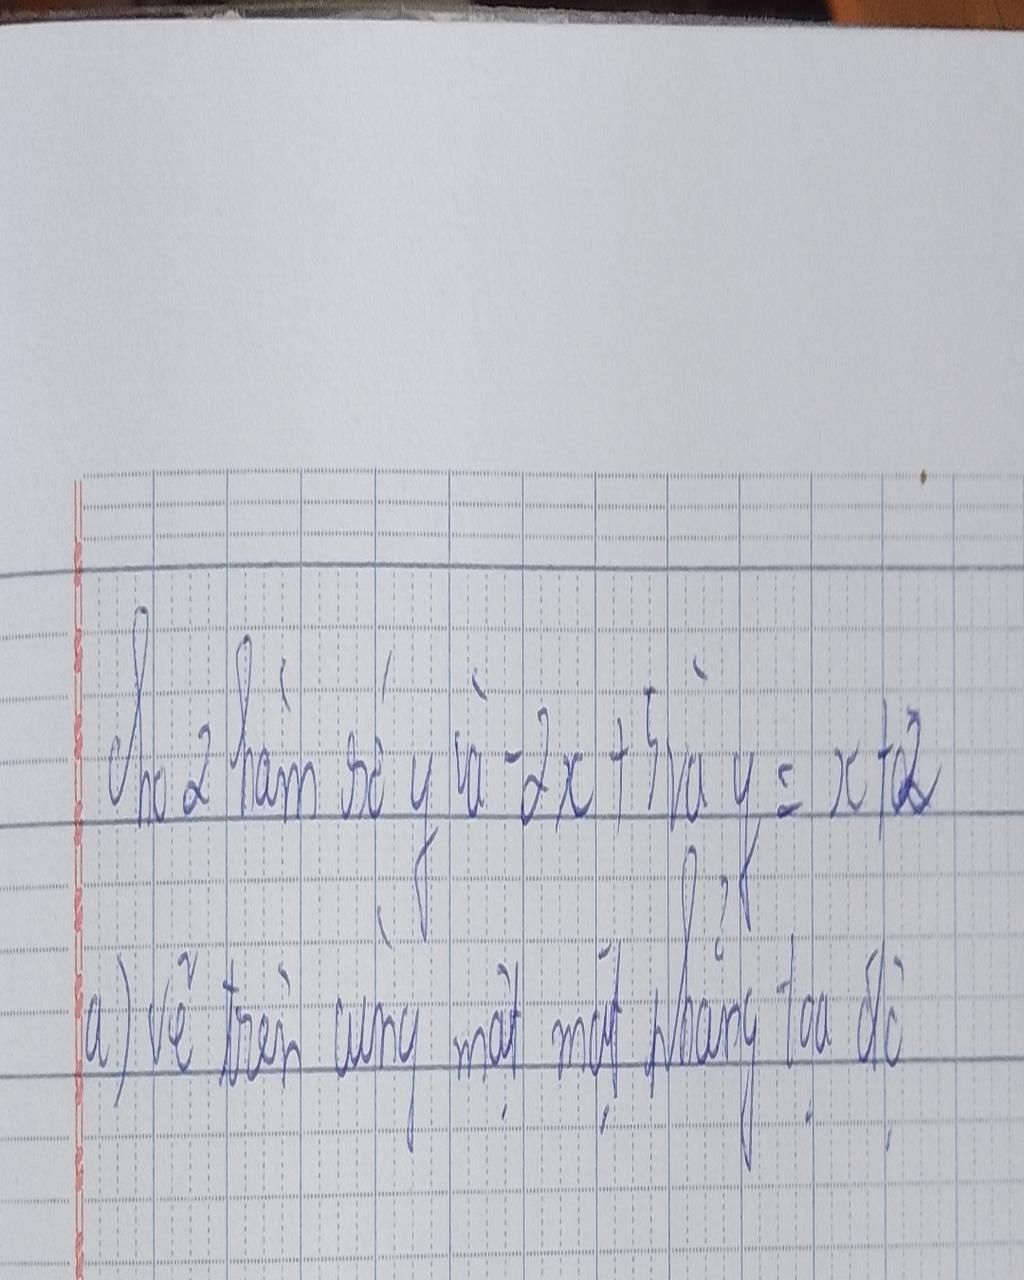 Cho 2 hàm số y và -2x + 5 và y = x + 2
a) Vẽ trên cùng một mặt phẳng tọa độ